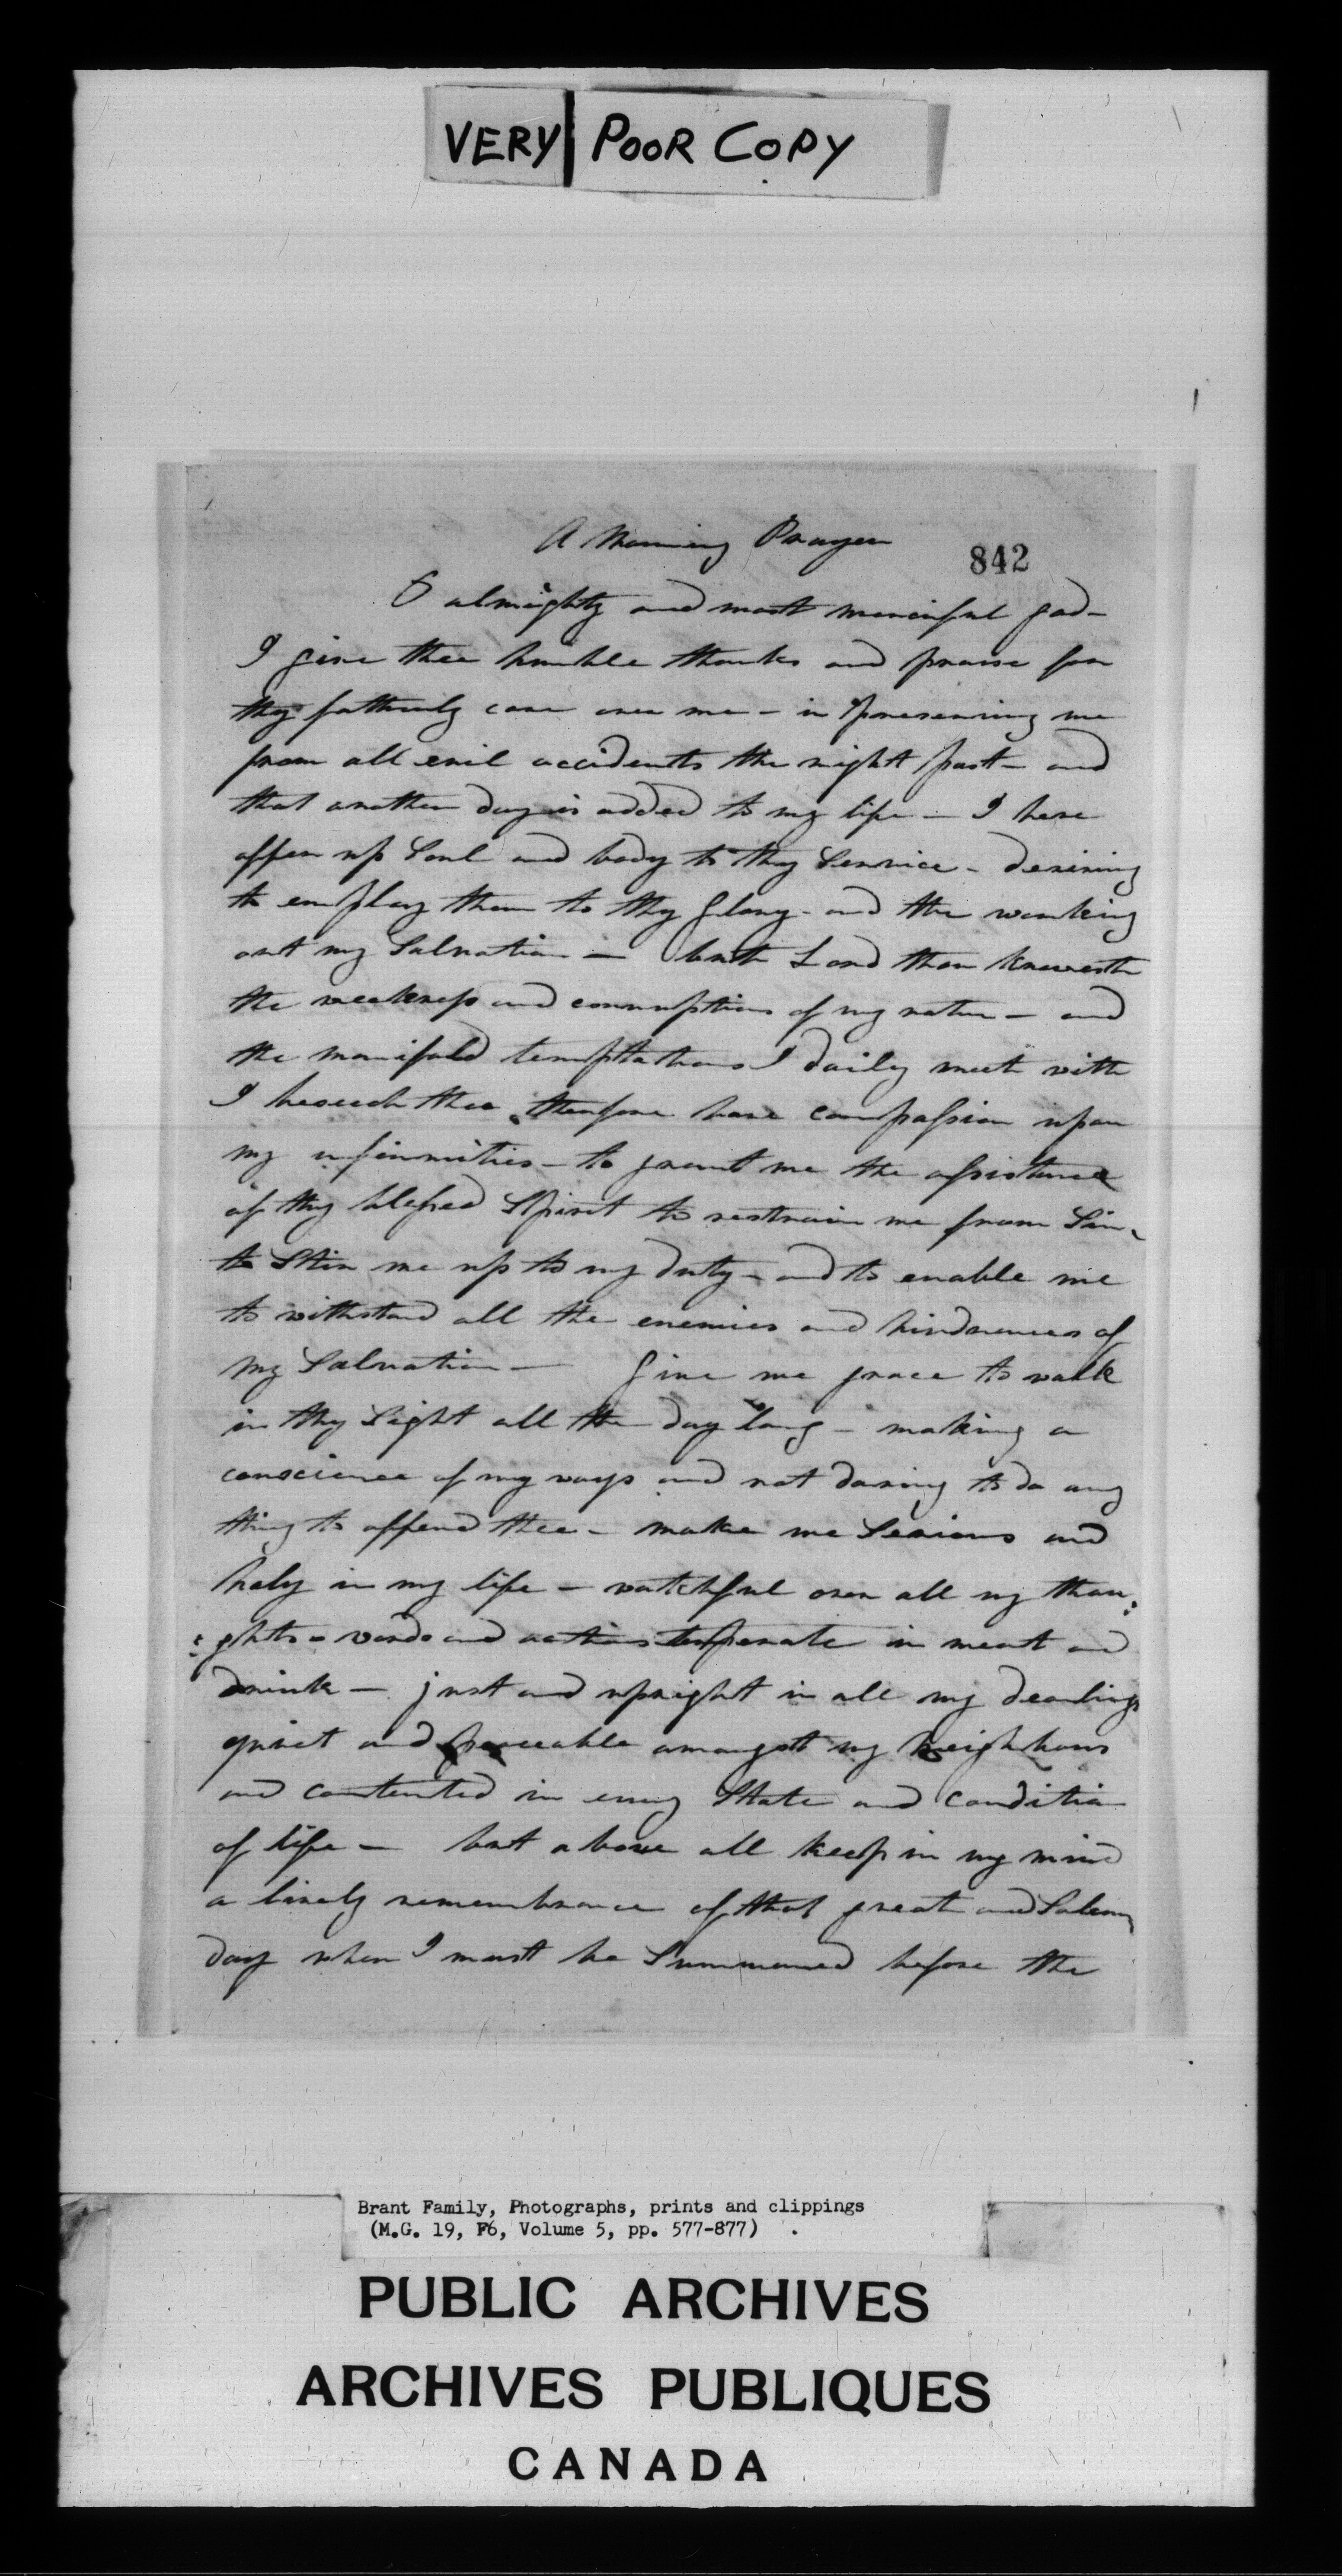 VERY POOR COPY
A Morning Prayer
842
O almighty and most merciful god -
I give thee humble thanks and praise for
thy fatherly care over me - in preserving me
from all evil accidents the night past - and
that another day is added to my life - I here
offer up Soul and body to thy Service - desiring
to employ them to thy glory - and the working
out my Salvation - but Lord thou knowest
the weakness and corruptions of my nature - and
the manifold temptations I daily meet with
I beseech thee therefore have compassion upon
my infirmities - to grant me the assistance
of thy blessed Spirit to restrain me from Sin -
to Stir me up to my duty - and to enable me
to withstand all the enemies and hindrances of
my Salvation - Give me grace to walk
in thy Sight all the day long - making a
conscience of my ways and not daring to do any
thing to offend thee - make me Serious and
holy in my life - watchful over all my thou:
:ghts - words and actions temperate in meat and
drink - just and upright in all my dealings
quiet and peaceable amongst my neighbours
and contented in every State and condition
of life - but above all keep in my mind
a lively remembrance of that great and Solemn
day when I must be Summoned before the
Brant Family, Photographs, prints and clippings
(M.G. 19, F6, Volume 5, pp. 577-877)
PUBLIC ARCHIVES
ARCHIVES PUBLIQUES
CANADA